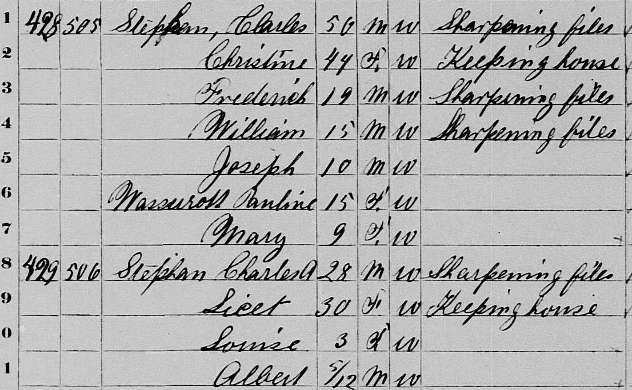 1 498 505 Stephan, Charles 50 M W Sharpening files
2 Christine 44 F. W Keeping house
3 Frederich 19 M W Sharpening files
4 William 15 M W Sharpening files
5 Joseph 10 M W
6 Pauline 15 F. W
7 Mary 9 F. W
8 499 506 Stephan Charles A 28 M W Sharpening files
9 Liset 30 F. W Keeping house
0 Louise 3 F W
1 Albert 5/12 M W